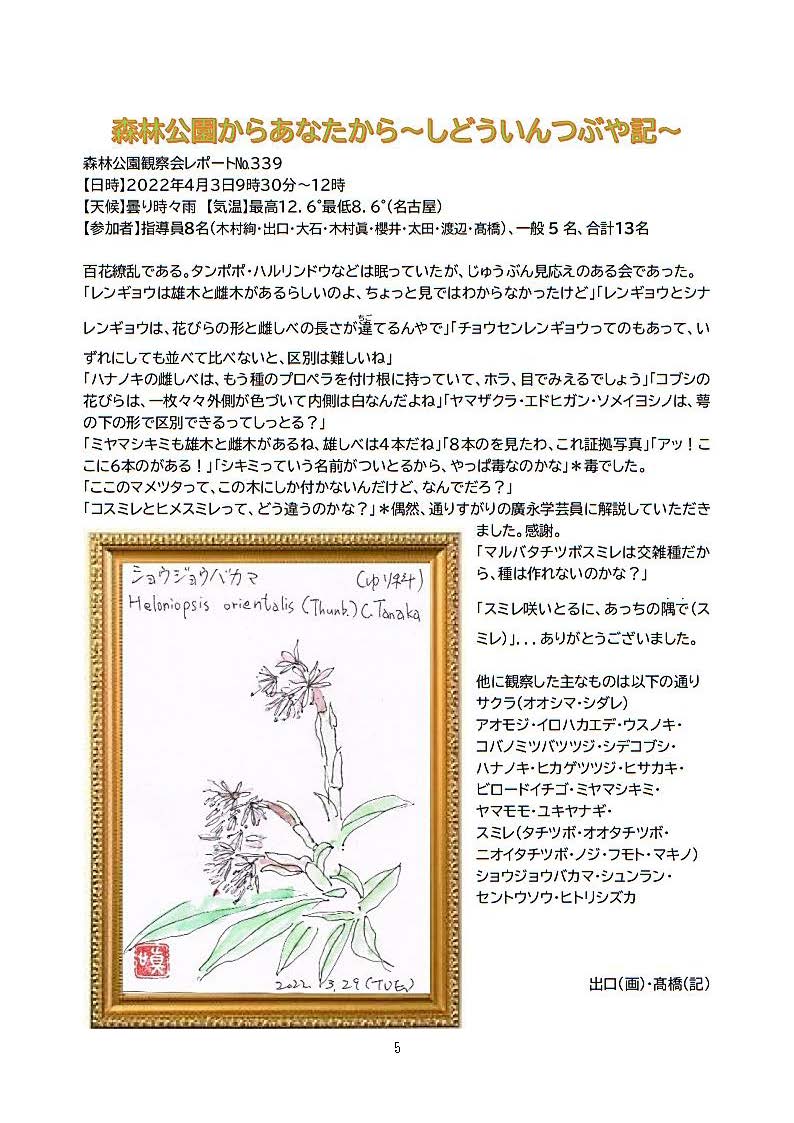 森林公園からあなたから～しどういんつぶや記～
森林公園観察会レポート№339
【日時】2022年4月3日9時30分～12時
【天候】曇り時々雨 【気温】最高12.6°最低8.6°(名古屋)
【参加者】指導員8名(木村絢・出口・大石・木村眞・櫻井・太田・渡辺・髙橋)、一般5名、合計13名
百花繚乱である。タンポポ・ハルリンドウなどは眠っていたが、じゅうぶん見応えのある会であった。
「レンギョウは雄木と雌木があるらしいのよ、ちょっと見ではわからなかったけど」「レンギョウとシナ
ちご
レンギョウは、花びらの形と雌しべの長さが違てるんやで」「チョウセンレンギョウってのもあって、い
ずれにしても並べて比べないと、区別は難しいね」
「ハナノキの雌しべは、もう種のプロペラを付け根に持っていて、ホラ、目でみえるでしょう」「コブシの
花びらは、一枚々々外側が色づいて内側は白なんだよね」「ヤマザクラ・エドヒガン・ソメイヨシノは、萼
の下の形で区別できるってしっとる？」
「ミヤマシキミも雄木と雌木があるね、雄しべは4本だね」「8本のを見たわ、これ証拠写真」「アッ！こ
こに6本のがある！」「シキミっていう名前がついとるから、やっぱ毒なのかな」＊毒でした。
「ここのマメヅタって、この木にしか付かないんだけど、なんでだろ？」
「コスミレとヒメスミレって、どう違うのかな？」＊偶然、通りすがりの廣永学芸員に解説していただき
ました。感謝。
「マルバタチツボスミレは交雑種だか
ら、種は作れないのかな？」
「スミレ咲いとるに、あっちの隅で(ス
ミレ)」...ありがとうございました。
他に観察した主なものは以下の通り
サクラ(オオシマ・シダレ)
アオモジ・イロハカエデ・ウスノキ・
コバノミツバツツジ・シデコブシ・
ハナノキ・ヒカゲツツジ・ヒサカキ・
ビロードイチゴ・ミヤマシキミ・
ヤマモモ・ユキヤナギ・
スミレ(タチツボ・オオタチツボ・
ニオイタチツボ・ノジ・フモト・マキノ)
ショウジョウバカマ・シュンラン・
セントウソウ・ヒトリシズカ
出口(画)・髙橋(記)
ショウジョウバカマ (ゆり科)
Heloniopsis orientalis (Thunb.) C. Tanaka
2022. 3. 29 (TUE)
5